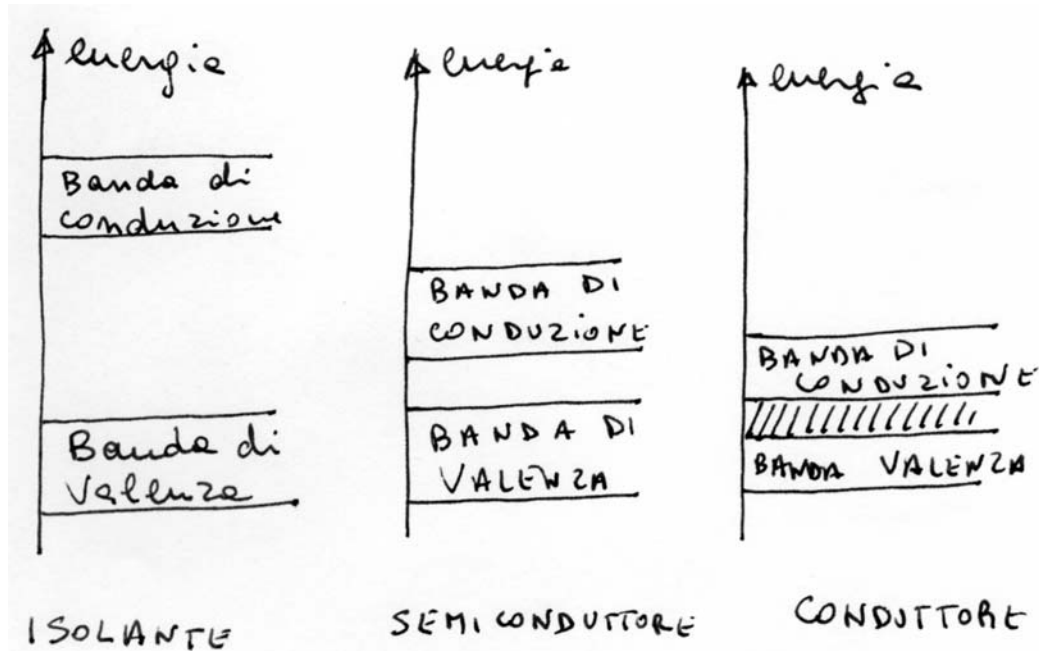 energia
Banda di
conduzione
Banda di
Valenza
ISOLANTE
energia
BANDA DI
CONDUZIONE
BANDA DI
VALENZA
SEMICONDUTTORE
energia
BANDA DI
CONDUZIONE
BANDA VALENZA
CONDUTTORE